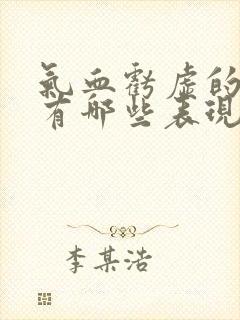 氣血虧虛的
有哪些表現
李某浩